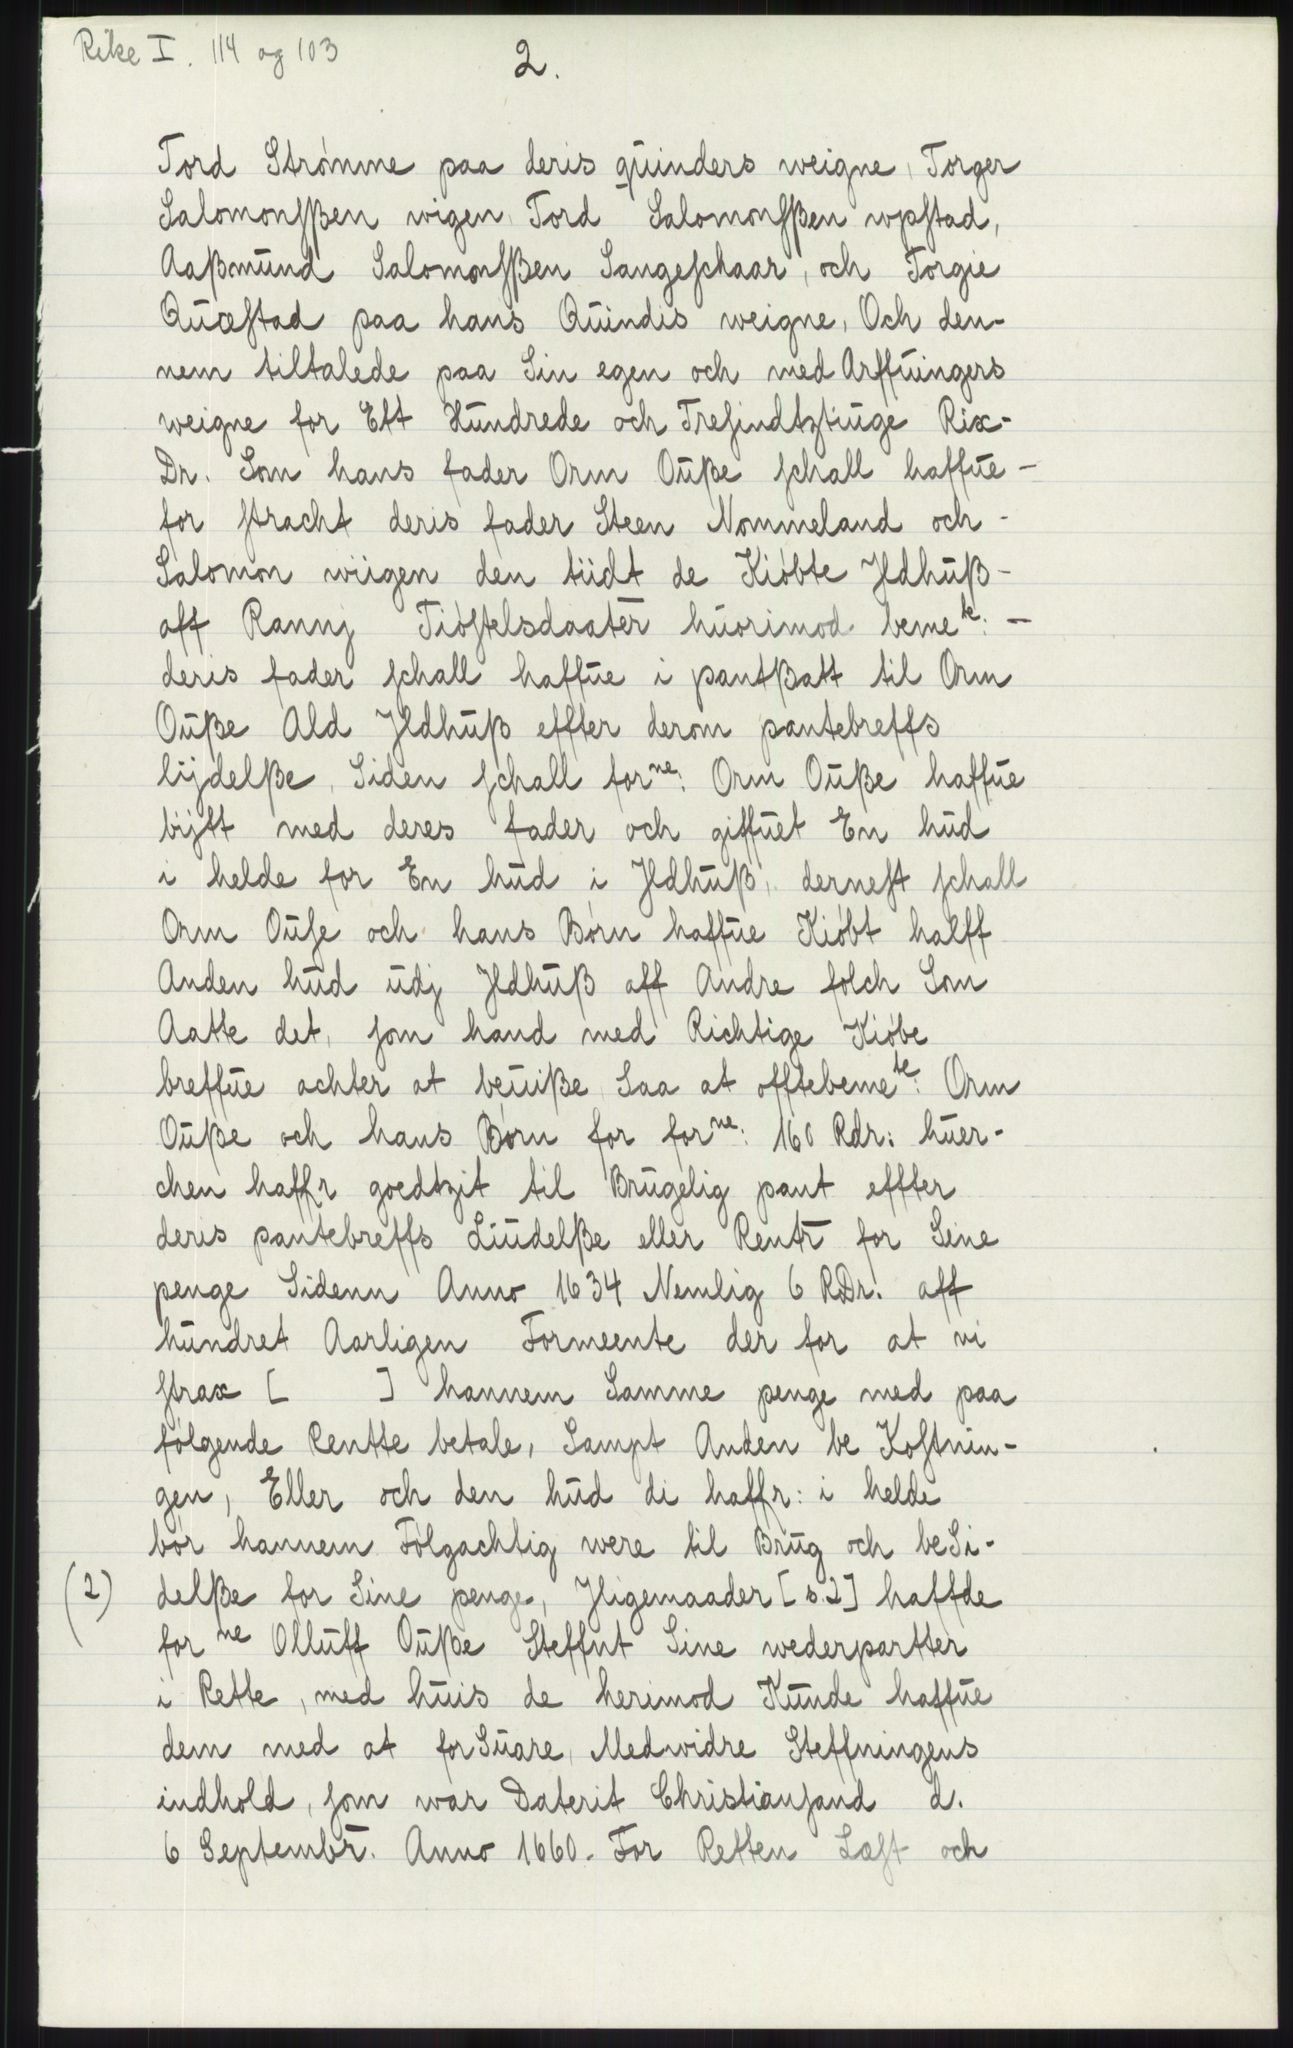 Rike I. 114 og 103
2.
Tord Strømme paa deris quinders weigne, Torger
Salomonsßen wigen, Tord Salomonsßen wpstad,
Aaßmund Salomonsßen Langeschaar, och Torgie
Quæstad paa hans Quindis weigne, Och den-
nem tiltalede paa Sin egen och med Arffuingers
weigne for Ett Hundrede och Tresindtztiuge Rix-
Dr. Som hans fader Orm Ouße schall haffue -
for stracht deris fader Steen Nommeland och -
Salomon wiigen den tiidt de Kiøbte Jldhuß -
aff Rannj Tiøstelsdaater huorimod beme te: -
deris fader schall haffue i pantßatt til Orm
Ouße Ald Jldhuß effter derom pantebreffs
lijdelße, Siden schall for ne: Orm Ouße haffue
bijtt med deres fader och giffuet En hud
i helde for En hud i Jldhuß, dernest schall
Orm Ouse och hans Børn haffue Kiøbt halff
Anden hud udj Jldhuß aff Andre folch Som
Aatte det, som hand med Richtige Kiøbe
breffue achter at beuiße, Saa at offtebeme te: Orm
Ouße och hans Børn for for ne: 160 Rdr: huer-
chen haffr goedtzit til Brugelig pant effter
deris pantebreffs Liudelße eller Rentr for Sine
penge Sidenn Anno 1634 Nemlig 6 RDr. aff
hundret Aarligen Formeente der for at vi
strax [ ] hannem Samme penge med paa
følgende Rentte betale, Sampt Anden be Kostnin-
gen, Eller och den hud di haffr: i helde
bør hannem Følgachtig were til Brug och beSi-
(2) delße for Sine penge, Jligemaader [s.2] haffde
for ne Olluff Ouße Steffnt Sine wederpartter
i Rette, med huis de herimod Kunde haffue
dem med at forSuare, Medwidre Steffningens
indhold, som war Daterit Christiansand d.
6 Septembr. Anno 1660. For Retten Læst och